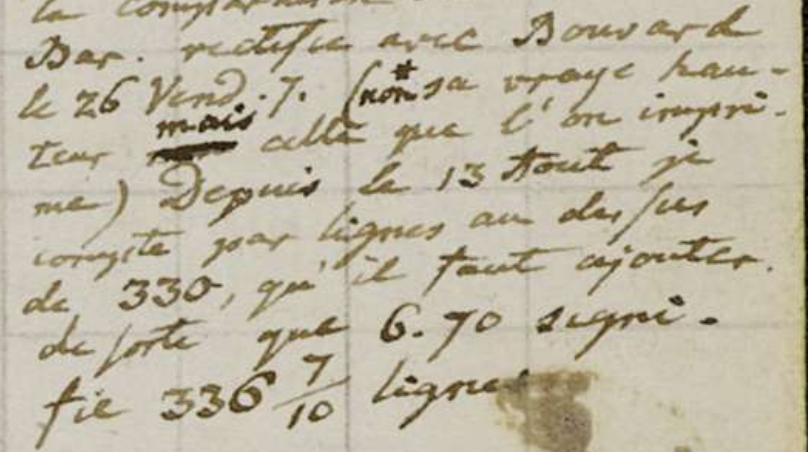 la comparaison
Bar. rectifié avec Bouvard
le 26 Vend. 7. (non* sa vraye hau-
teur mais celle que l'on impri-
me) Depuis le 13 Aout je
compte par lignes au dessus
de 330, qu'il faut ajouter.
de sorte que 6.70 signi-
fie 336 7/10 lignes